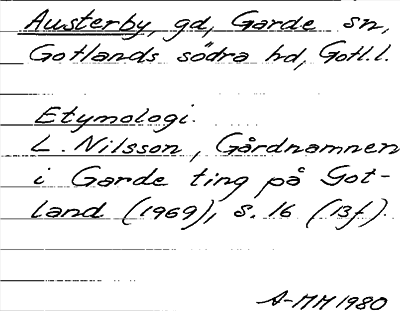 Austerby, gd, Garde sn,
Gotlands södra hd, Gotl.l.
Etymologi.
L. Nilsson, Gårdnamnen
i Garde ting på Got-
land (1969), s. 16 (13f).
A-MM 1980